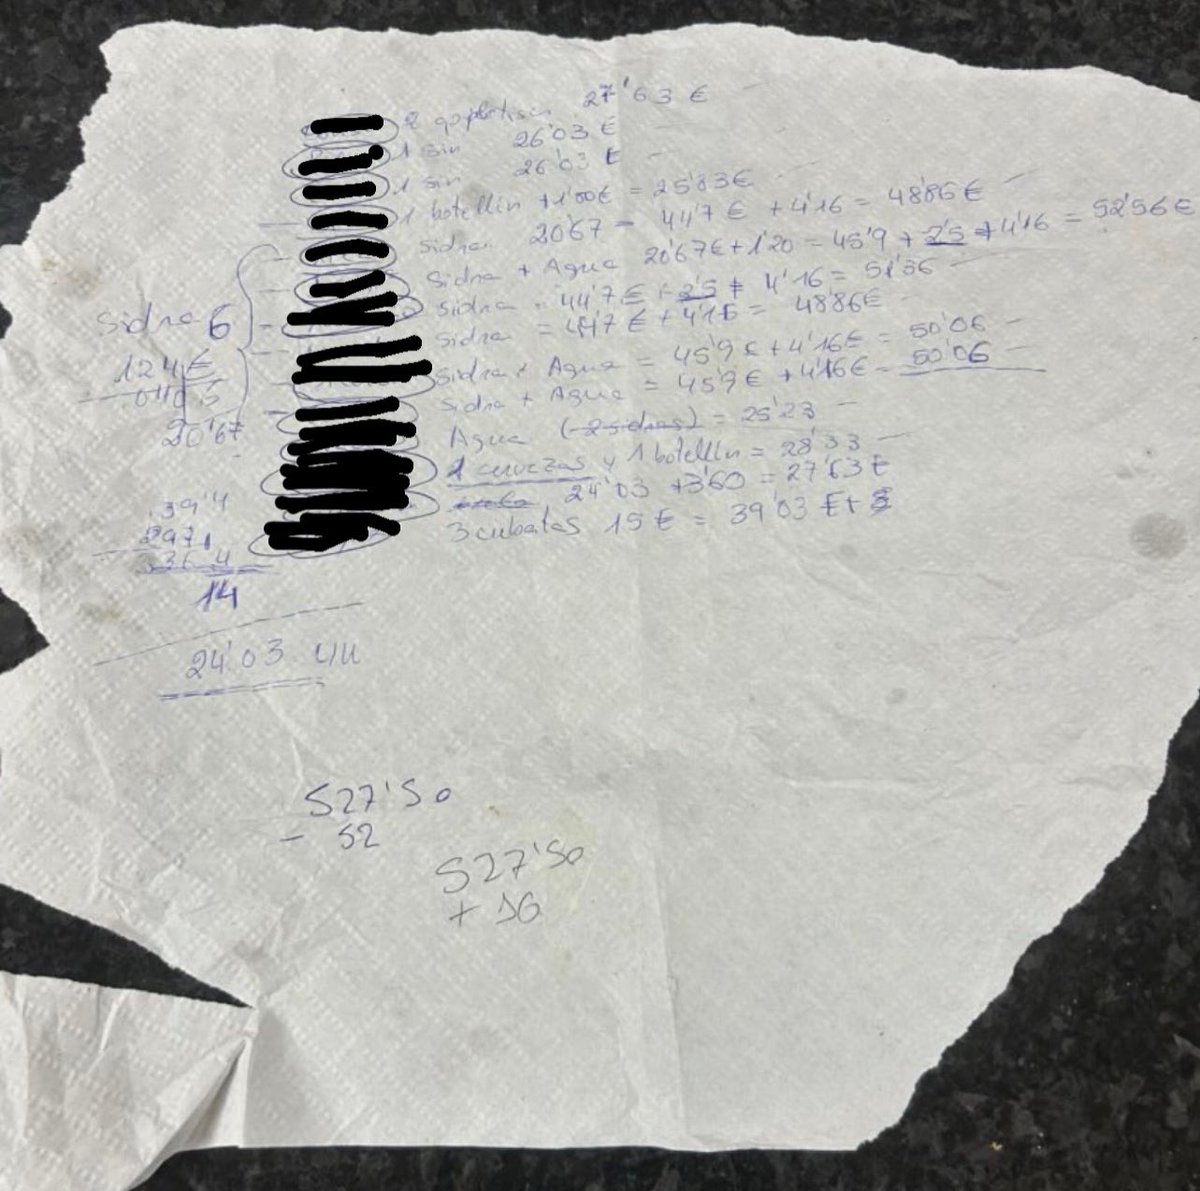 2 27'63 €
1 sin 26'03 €
1 sin 26'03 €
1 botellín + 1'80€ = 25'83€
Sidra 20'67 = 44'7 € + 4'16 = 48'86 €
Sidra + Agua 20'67€ + 1'20 = 45'9 + 2'5 + 4'16 = 52'56 €
Sidra = 44'7 € + 2'5 + 4'16 = 51'36
Sidra = 44'7 € + 4'16 = 48'86€
Sidra + Agua = 45'9 € + 4'16€ = 50'06
Sidra + Agua = 45'9 € + 4'16€ = 50'06
Agua (-2 sidras) = 25'23
1 cervezas y 1 botellín = 28'33
24'03 + 3'60 = 27'63 €
3 cubatas 15 € = 39'03 € +
Sidra 6
124 €
20'67
39'4
14
24'03
527'50
- 52
527'50
+ 16